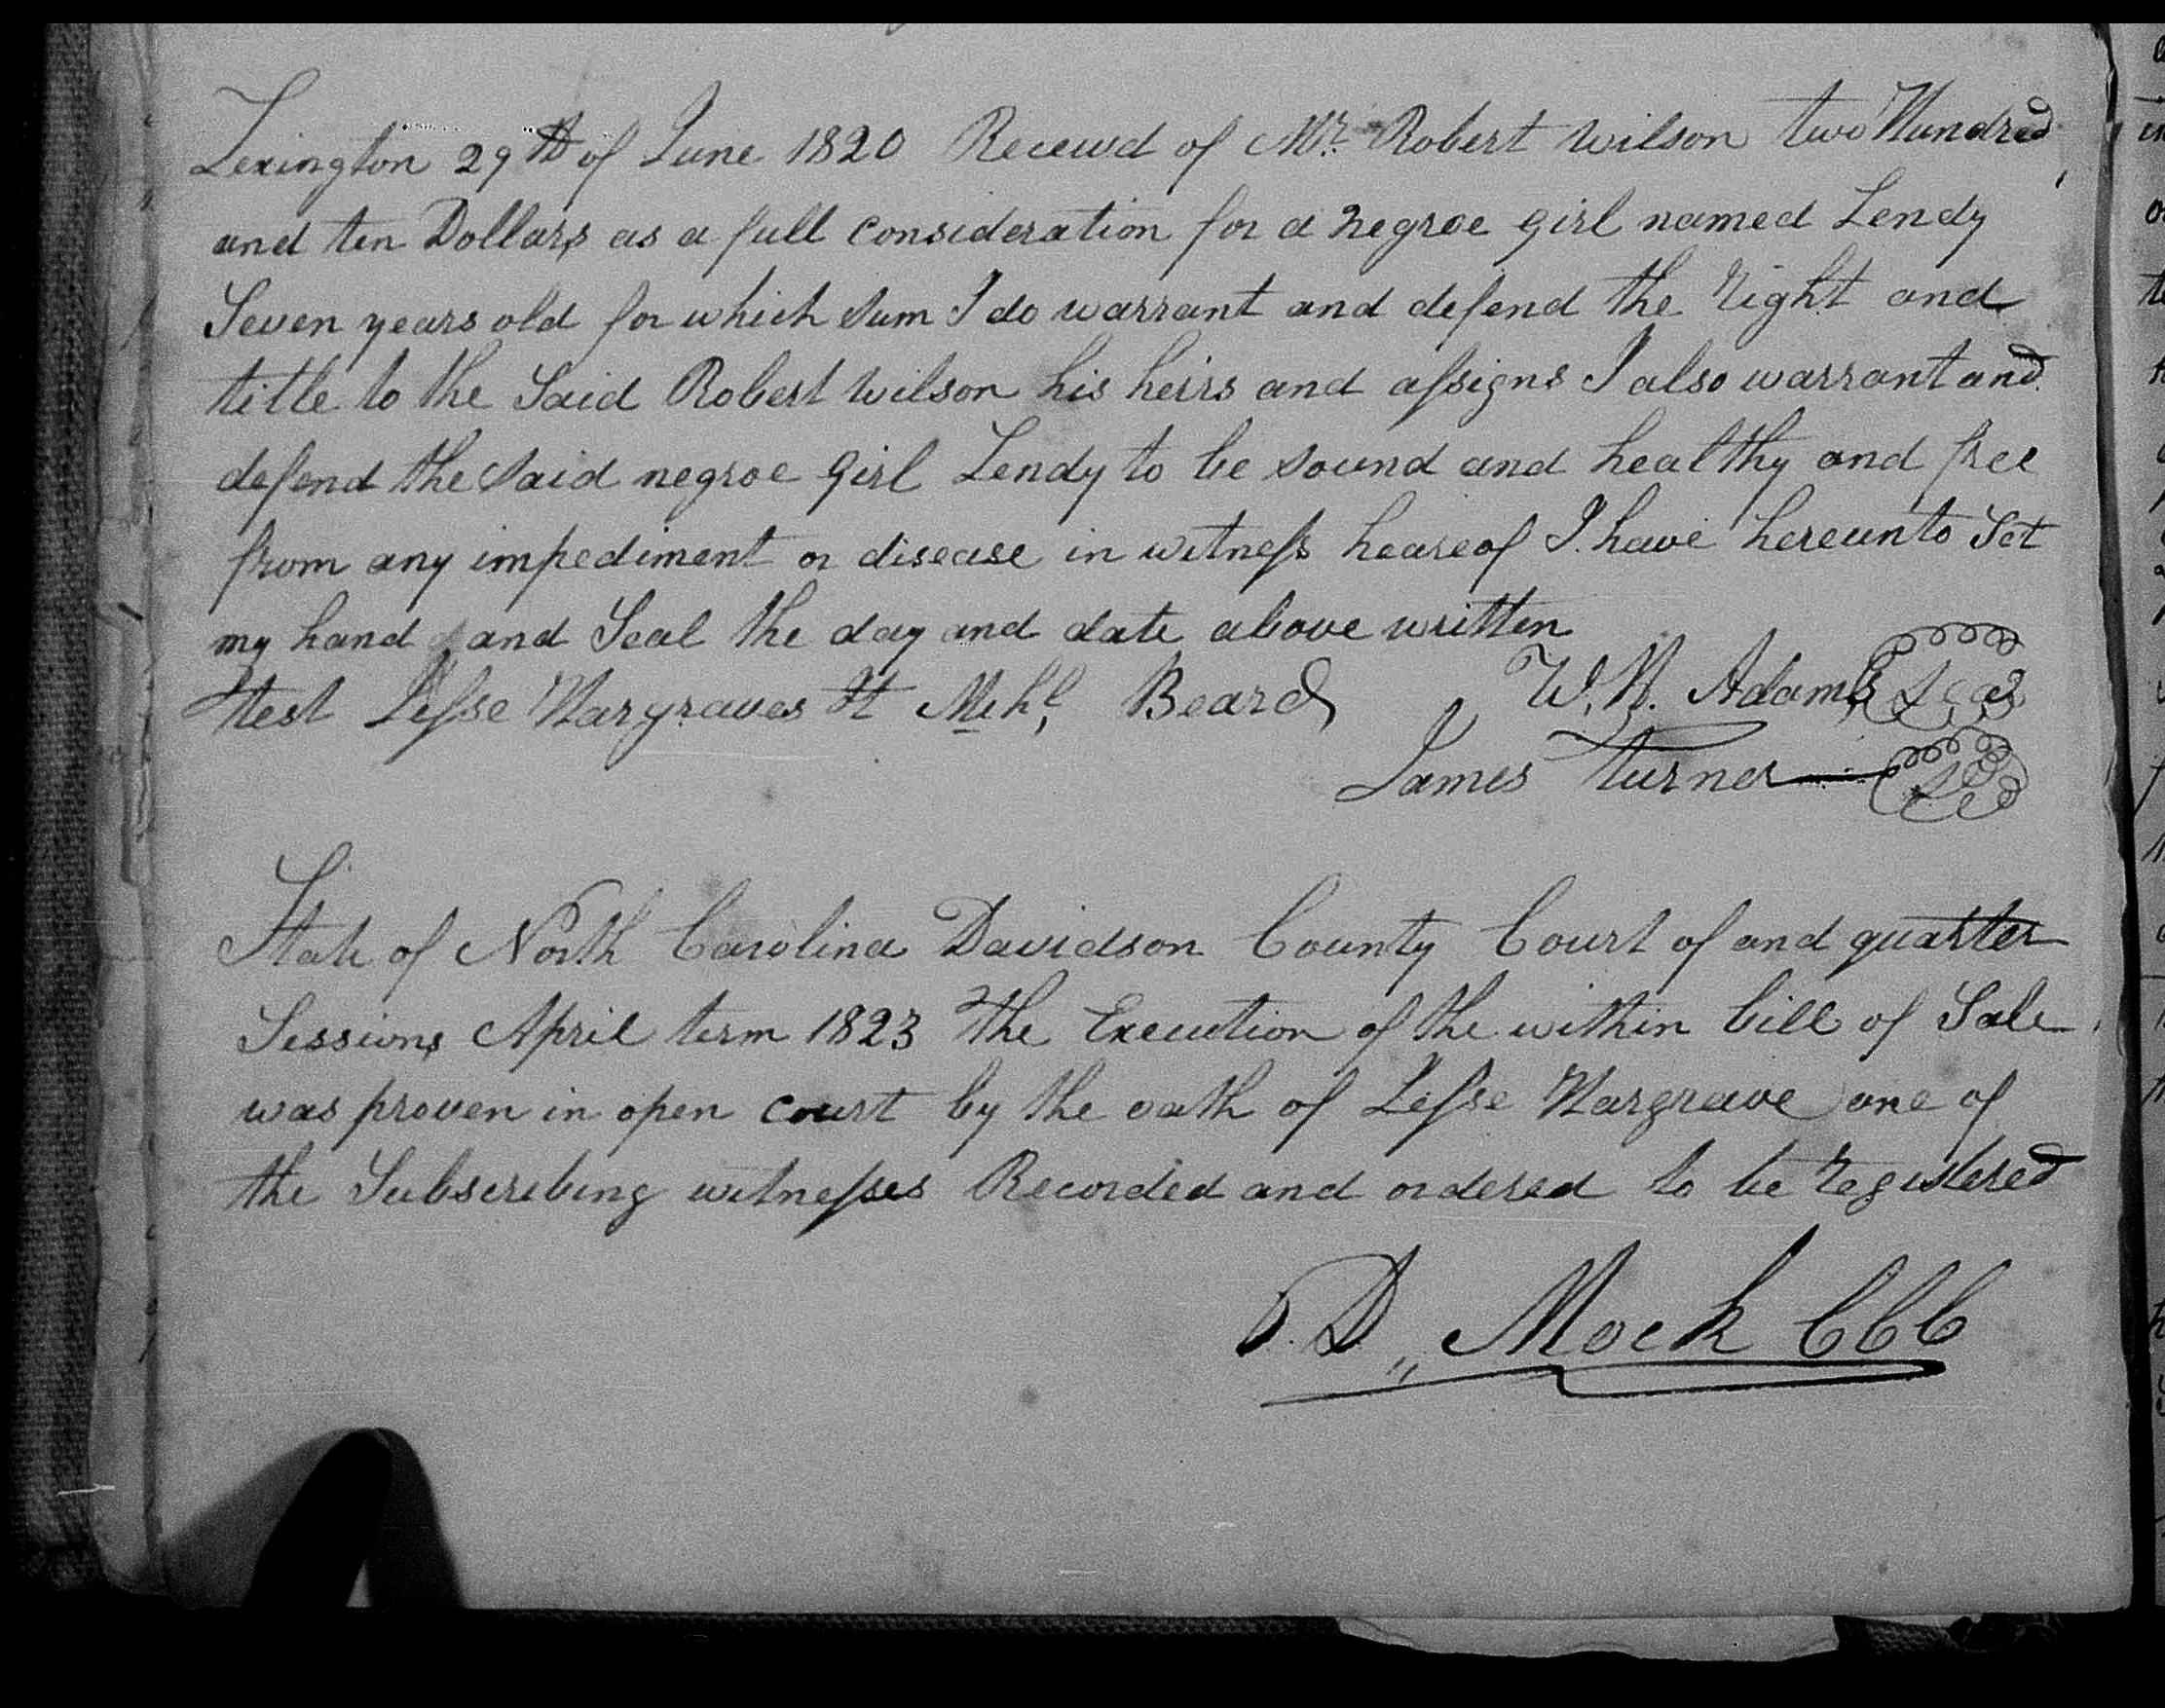 Lexington 29th of June 1820 Receivd of Mr. Robert Wilson two Hundred
and ten Dollars as a full consideration for a negroe girl named Lendy
Seven years old for which Sum I do warrant and defend the right and
title to the Said Robert Wilson his heirs and assigns I also warrant and
defend the Said negroe girl Lendy to be sound and healthy and free
from any impediment or disease in witness heareof I have hereunto Set
my hand and Seal the day and date above written
test Lesse Hargraves Beard
W. Adams Seal
James Turner Seal
State of North Carolina Davidson County Court of and quarter
Sessions April term 1823 The Execution of the within bill of Sale
was proven in open court by the oath of Lesse Hargrave one of
the Subscribing witnesses Recorded and ordered to be registered
D,, Mock CCC